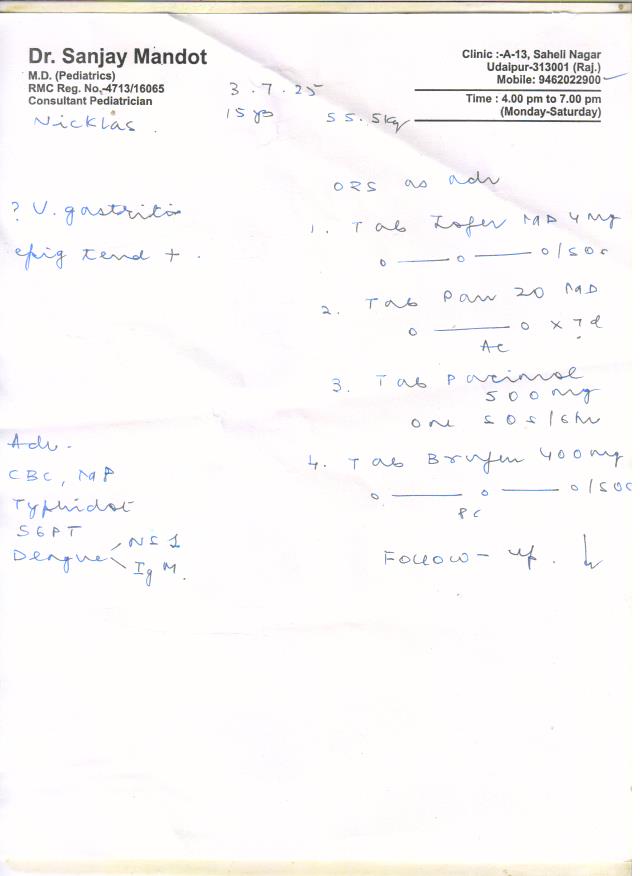 Dr. Sanjay Mandot
M.D. (Pediatrics)
RMC Reg. No.-4713/16065
Consultant Pediatrician
Clinic :-A-13, Saheli Nagar
Udaipur-313001 (Raj.)
Mobile: 9462022900
Time : 4.00 pm to 7.00 pm
(Monday-Saturday)
3.7.25
Nicklas
15 yrs 55.5kg
ORS as adv
? V. gastritis
epig tend +
1. Tab Zofer MD 4 mg
o — o — o / SOS
2. Tab Pan 20 MD
o — o x 7 d
AC
3. Tab Pacimol
500 mg
one SOS/6hr
Adv.
CBC, MP
Typhidot
SGPT
Dengue NS1
IgM
4. Tab Brufen 400 mg
o — o — o / SOS
PC
Follow-up.